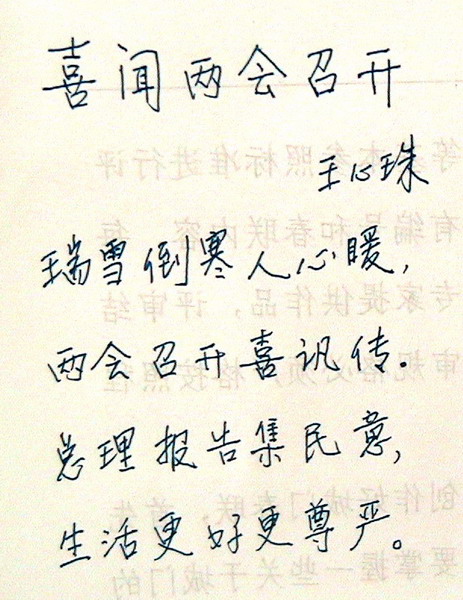 喜闻两会召开
王心珠
瑞雪倒寒人心暖,
两会召开喜讯传.
总理报告集民意,
生活更好更尊严。